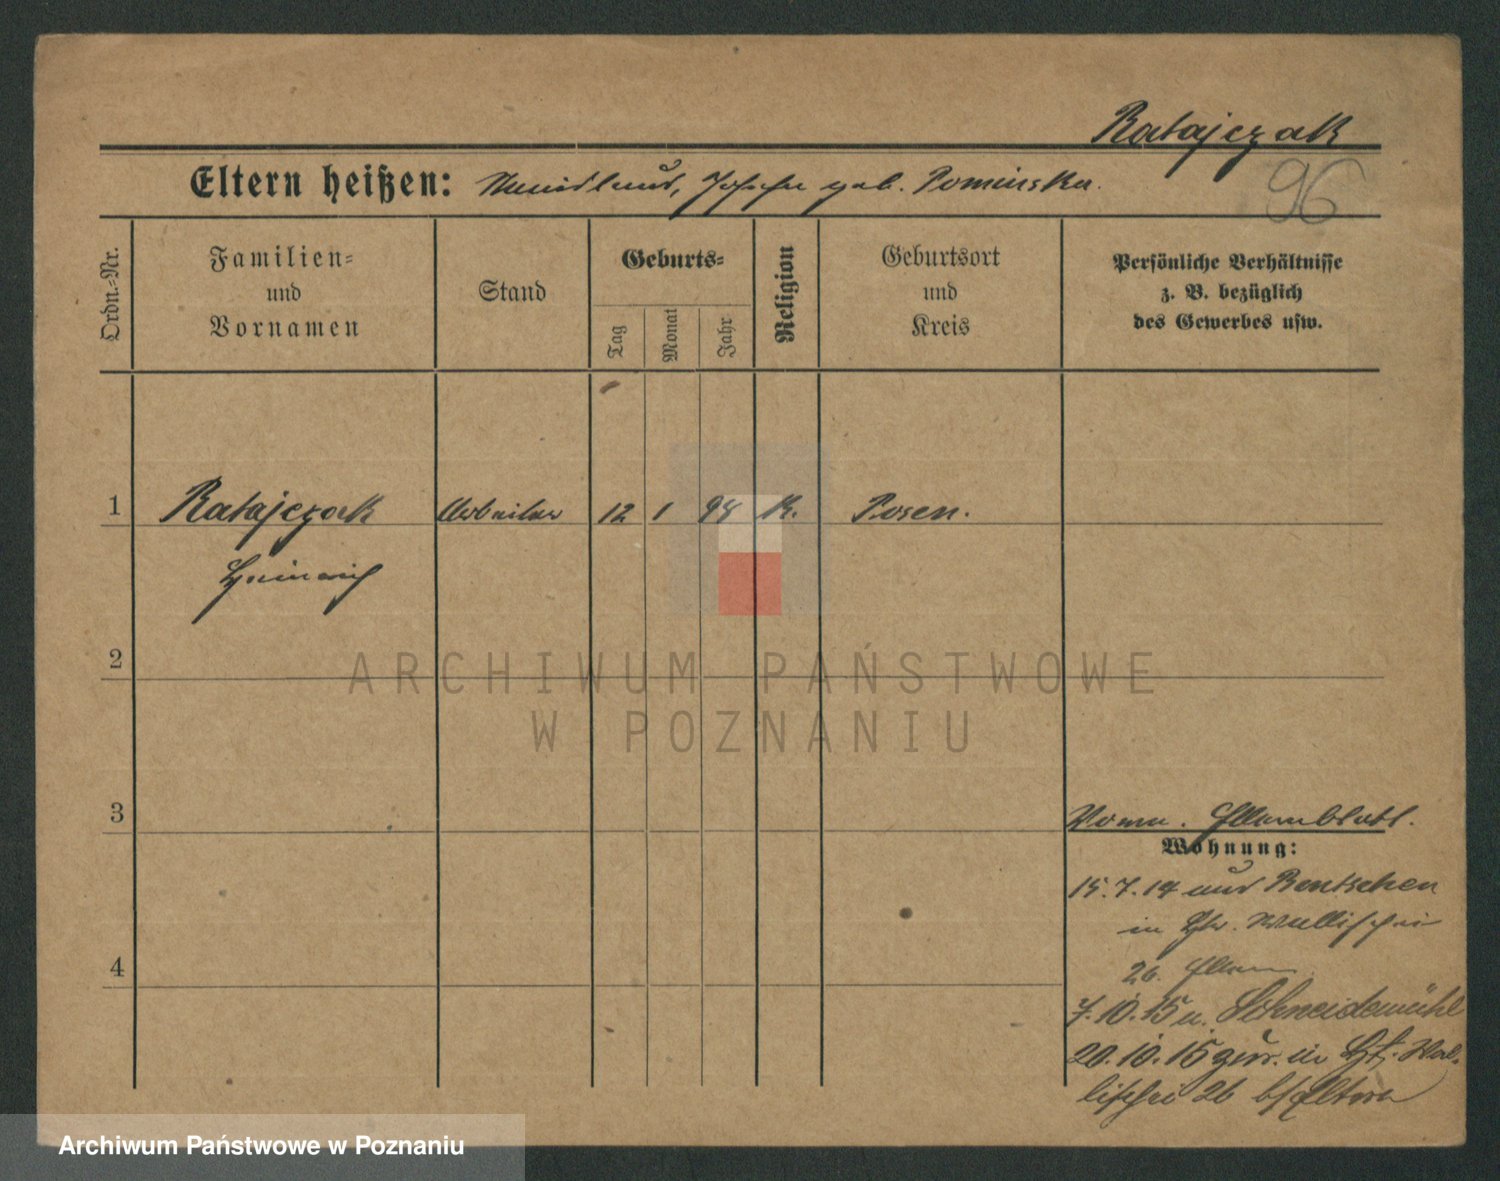 Ratajczak
Eltern heißen: geb. Pominska.
96
Ordn.-Nr.
Familien-
und
Vornamen
Stand
Geburts-
Tag
Monat
Jahr
Religion
Geburtsort
und
Kreis
Persönliche Verhältnisse
z. B. bezüglich
des Gewerbes usw.
1 Ratajczak Arbeiter 12 1 98 K. Posen.
Heinrich
2
3
4
Wohnung:
15.7.14 aus Bentschen
in Hier. Wallischei
26. Eltern
7.10.15 n. Schneidemühl
20.10.15 zur. in Wal-
lischei 26 b/Eltern
ARCHIWUM PAŃSTWOWE
W POZNANIU
Archiwum Państwowe w Poznaniu